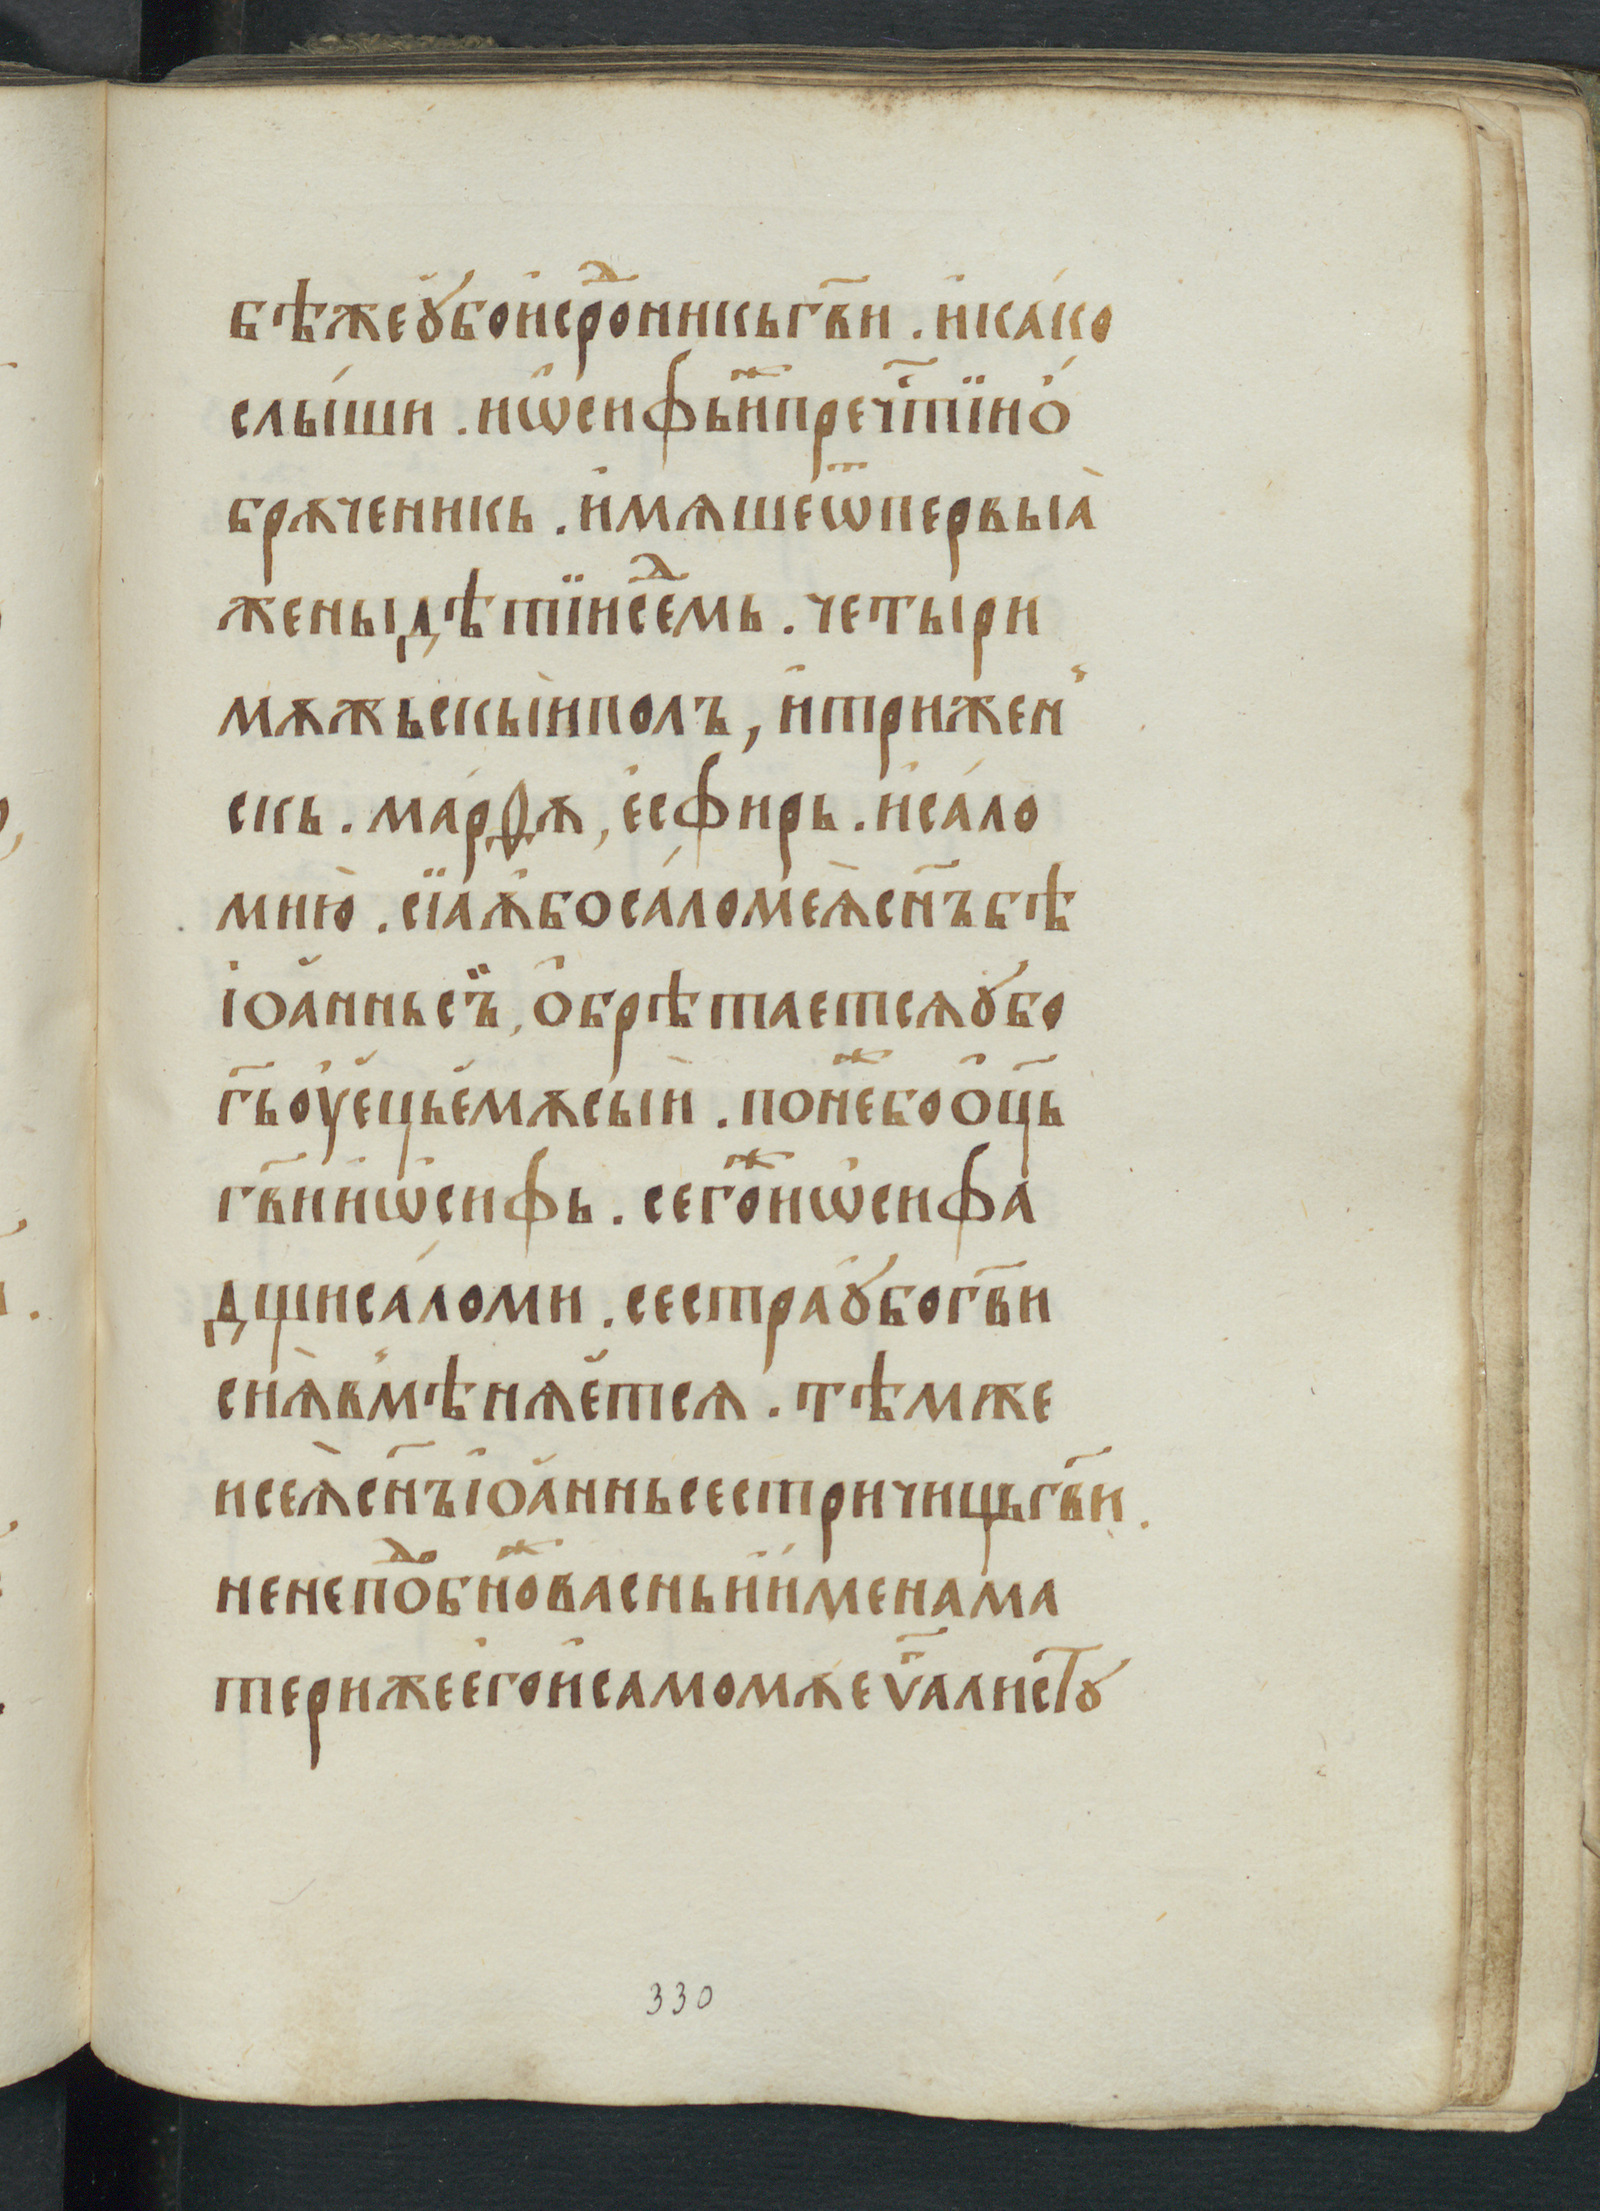 бѣжеꙋ҆бои҆срⷣо́никьгв҃и . и҆ка́ко
слы́ши . иѡ҆сифьиⷤпречⷭ҇тїи҆ѻ҆́
брѧченикь . и҆мѧшеѿпервыѧ̀
женыдѣтїисеⷣмь . четыри
мѫжьскыиполъ , и҆триженˮ
скь . ма́рѳѫ , е҆сфирь . и҆са́ло
мию̀ . сїаѫ҆боса́ломеѧ̀сн҃ъбѣ
іѻ҆а́нньсъ̈ , ѻ҆брѣтаетсѧꙋ҆бо
г҃ьоу҆ецьемѫсыѝ . понеⷤбоѻ҆ц҃ь
гв҃ииѡ҆сифь . сегоⷤиѡ҆сифа
дщиса́ломи . сестраꙋ҆богв҃и
сиѧ̀вмѣнѧ́етсѧ . тѣмже
исеѧ̀сн҃ъіѻ҆а́нньсестричищьгв҃и .
ненепоⷣбноⷤвасньи҆и҆менама
терижеего̀и҆самомѫ́еѵ҃алисту
330